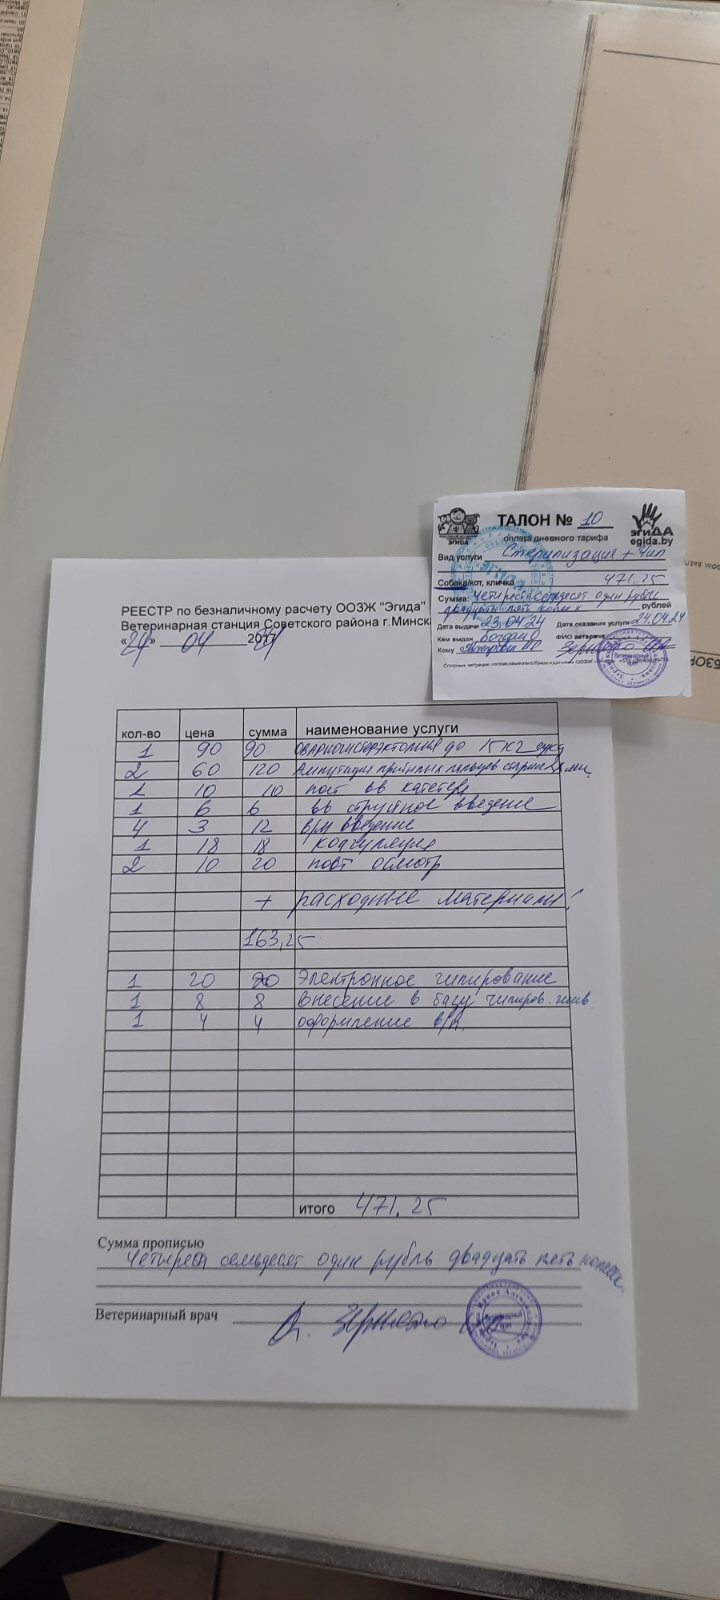 ТАЛОН № 10
оплата дневного тарифа
ЭГИДА
ЭГИДА
egida.by
Вид услуги Стерилизация + чип
Собака/кот, кличка 471,25
Сумма: Четыреста семьдесят один рубль
двадцать пять копеек рублей
Дата выдачи 23.04.24 Дата оказания услуги 24.04.24
Кем выдан Богдан ФИО ветврача
Кому
РЕЕСТР по безналичному расчету ООЗЖ "Эгида"
Ветеринарная станция Советского района г.Минска
«24» 04 2017
кол-во цена сумма наименование услуги
1 90 90 овариогистерэктомия до 15 кг сука
2 60 120 Ампутация прибылых пальцев старше
1 10 10 пост вв катетера
1 6 6 вв струйное введение
4 3 12 в/м введение
1 18 18 коагуляция
2 10 20 пост осмотр
+ расходные материалы!
163,25
1 20 20 Электронное чипирование
1 8 8 Внесение в базу чипиров. жив.
1 4 4 оформление в/п.
итого 471,25
Сумма прописью
Четыреста семьдесят один рубль двадцать пять копеек
Ветеринарный врач